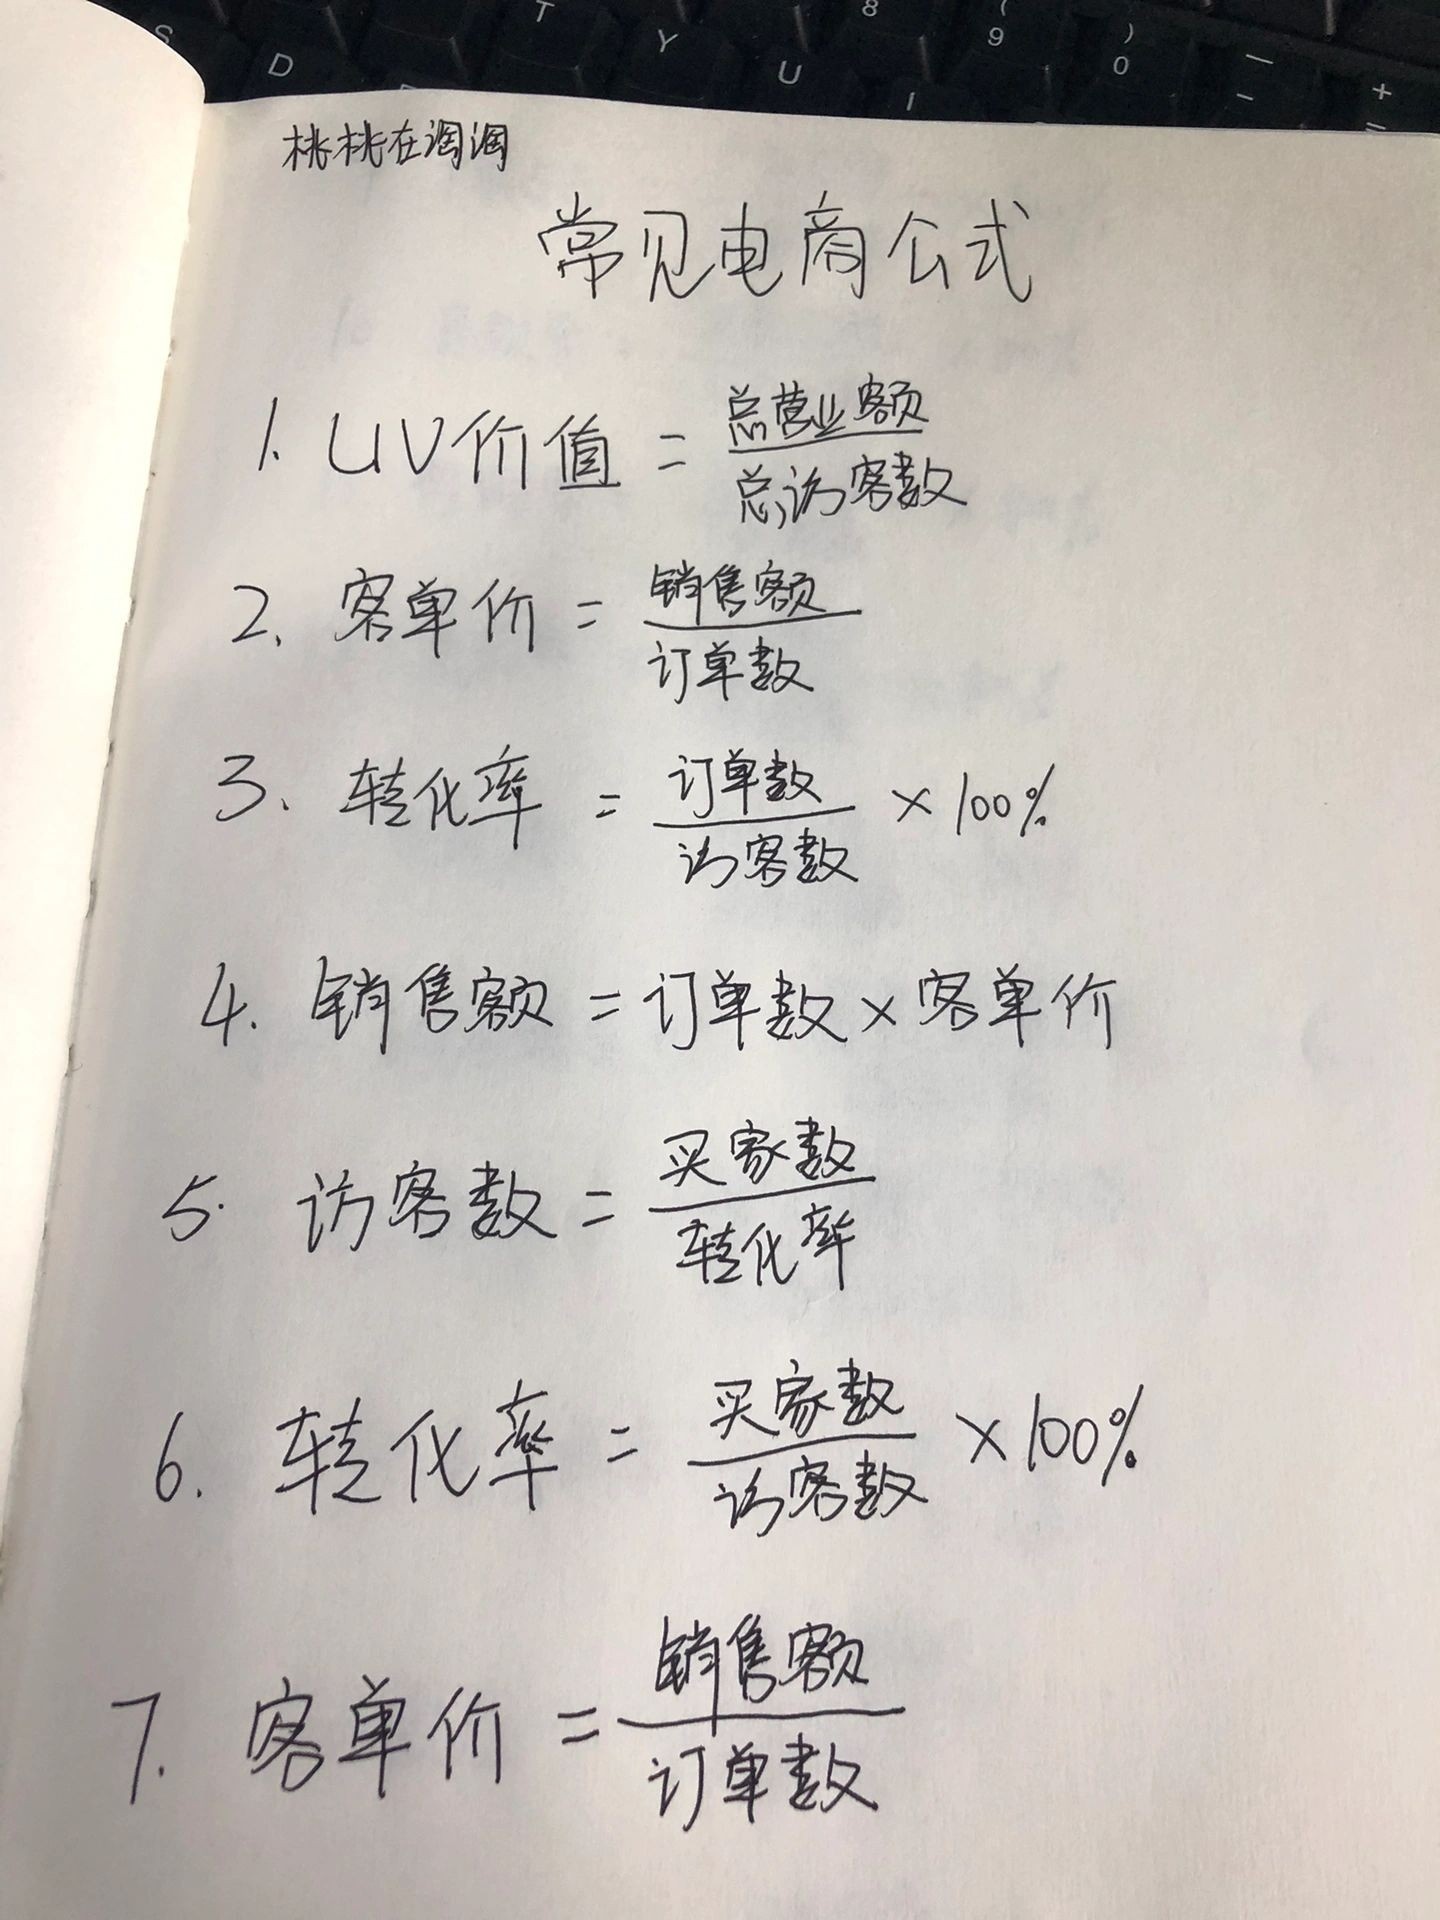 S D T Y U 8 ( 9 I ) 0 — - + =
桃桃在淘淘
常见电商公式
1. UV价值 = 总营业额/总访客数
2. 客单价 = 销售额/订单数
3. 转化率 = 订单数/访客数 × 100%
4. 销售额 = 订单数 × 客单价
5. 访客数 = 买家数/转化率
6. 转化率 = 买家数/访客数 × 100%
7. 客单价 = 销售额/订单数